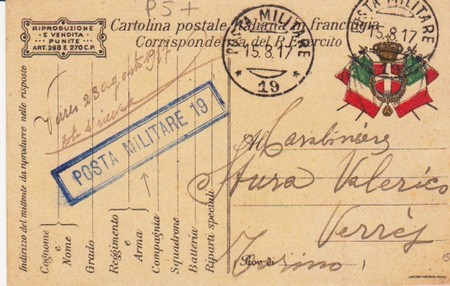 P5+
RIPRODUZIONE
E VENDITA
PUNITE
ART. 268 E 270 C.P.
Cartolina postale italiana in franchigia
Corrispondenza del R. Esercito
POSTA MILITARE
15.8.17
* 19 *
POSTA MILITARE
15.8.17
POSTA MILITARE 19
Al Carabiniere
Stura Valerico
Verrès
Torino
Indirizzo del mittente da riprodurre nelle risposte
Cognome
e
Nome
Grado
Reggimento
e
Arma
Compagnia
Squadrone
Batteria
Riparti speciali